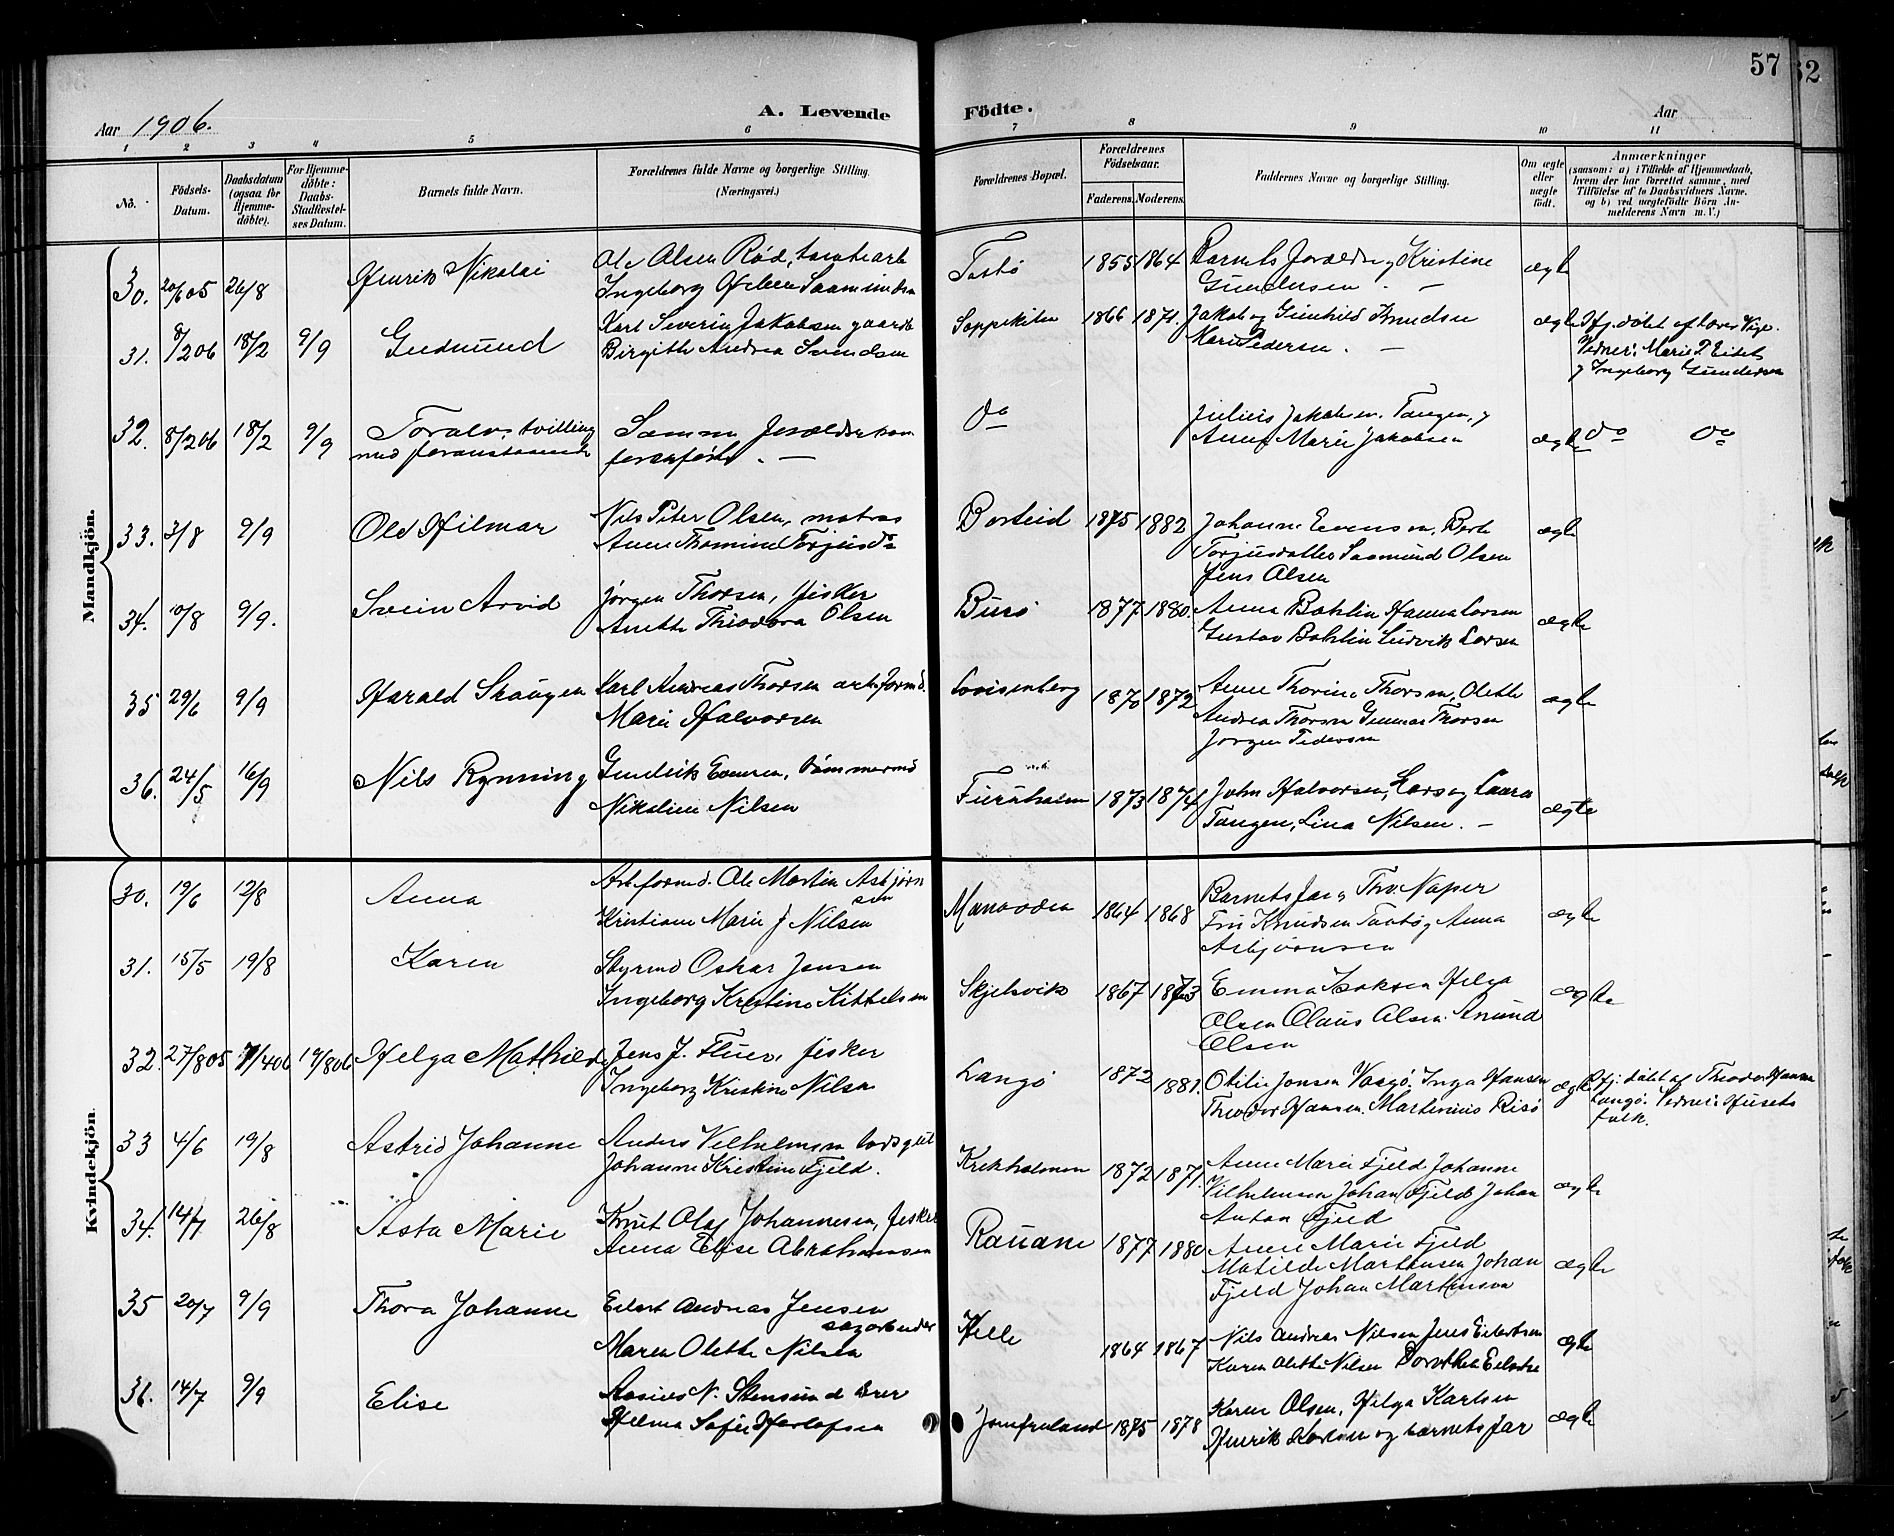 57
62
A. Levende Födte.
Aar 1906.
Aar
1 2 3 4 5 6 7 8 9 10 11
No.
Födsels-Datum.
Daabsdatum (ogsaa for Hjemmedöbte).
For Hjemmedöbte: Daabs-Stadfæstelses Datum.
Barnets fulde Navn.
Forældrenes fulde Navne og borgerlige Stilling. (Næringsvei.)
Forældrenes Bopæl.
Forældrenes Födselsaar.
Faderens. Moderens.
Faddernes Navne og borgerlige Stilling.
Om ægte eller uægte födt.
Anmærkninger
(saasom: a) i Tilfælde af Hjemmedaab, hvem der har forrettet samme, med Tilföielse af to Daabsvidners Navne, og b) ved uægtefödte Börn Anmelderens Navn m. V.)
Mandkjön.
30. 20/6 05 26/8 Henrik Nikolai
Ole Olsen Rød,
Ingeborg Helene Saamundsen
Tåtø 1855 1864 Barnets Forældre, Kristine
Gundersen. — ægte
31. 8/2 06 18/2 9/9 Gudmund
Karl Severin Jakobsen gaardb
Birgithe Andrea Svendsen
Soppekilen 1866 1871. Jakob og Gunhild Knudsen
Marie Pedersen. — ægte
Hj. døbt af Lars Vige.
Vidner: Marie P. Eidet
y Ingeborg Gundersen
32. 8/2 06 18/2 9/9 Toralv, tvilling
med foranstaaende
Samme Forældre som
foranførte. —
do Julius Jakobsen Tangen, y
Anne Marie Jakobsen ægte do do
33. 3/8 9/9 Olaf Hilmar
Nils Peter Olsen, matros
Anne Thomine Torjusdr
Borteid 1875 1882 Johanne Evensen, Berte
Torjusdatter Saamund Olsen
Jens Olsen ægte
34. 10/8 9/9. Svein Arvid
Jørgen Thorsen, fisker
Anette Theodora Olsen
Burø 1877 1880. Anna Bohlin Hanna Larsen
Gustav Bohlin Ludvik Larsen ægte
35 29/6 9/9 Harald Skaugen
Karl Andreas Thorsen arb. formd.
Marie Halvorsen
Lovisenberg 1870 1872 Anne Thorine Thorsen, Olette
Andrea Thorsen Gunnar Thorsen
Jørgen Pedersen ægte
36. 24/5 16/9 Nils Rynning
Gudrik Evensen, tömmermd
Nikoline Nilsen
Furuholmen 1873 1874 John Halvorsen, Lars og Laura
Tangen, Lina Nilsen. — ægte
Kvindekjön.
30. 19/6 12/8 Anna
Arb. formd. Ole Martin Asbjörn
sen
Kristiane Marie J Nilsen
1864 1868 Barnets Far, Thv. Naper
Fru Knudsen Taatø y Anna
Asbjörnsen ægte
31. 15/5 19/8 Karen
Styrmd Oskar Jensen
Ingeborg Kristine Kittelsen
Skjelsvik 1867 1873 Emma Isaksen Helga
Olsen Olaus Olsen Anund
Olsen ægte
32. 27/8 05 7/4 06 19/8 06 Helga Mathilde
Jens J. Fluer, fisker
Ingeborg Kristine Nilsen
Langø 1872 1881. Otilie Jonsen Vaagø. Inga Hansen
Theodor Hansen. Martinius Risø ægte
Hj. døbt af Theodor Hansen
Langø. Vidner: Husets
folk.
33 4/6 19/8 Astrid Johanne
Anders Vilhelmsen lodsgut
Johanne Kristine Fjeld.
Krikholmen 1872 1871. Anne Marie Fjeld Johanne
Vilhelmsen Johan Fjeld Johan
Anton Fjeld ægte
34. 14/7 26/8 Asta Marie
Knut Olaf Johannesen, fisker
Anna Elise Abrahamsen
Rauane 1877 1880 Anne Marie Fjeld
Matilde Martinsen Johan
Fjeld Johan Martinsen ægte
35 20/7 9/9 Thora Johanne
Eilert Andreas Jensen
sagarbeider
Maren Olette Nilsen
Helle 1864 1867 Nils Andreas Nilsen Jens Eilertsen
Karen Olette Nilsen Dorothea Eilertsen ægte
36. 14/7 9/9 Elise
Aasius N. Stensund lærer
Helma Sofie Herlofsen
Jomfruland 1875 1878 Karen Olsen, Helga Karlsen
Henrik Karlsen og barnets far ægte